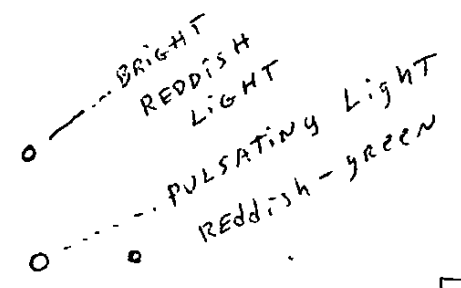 BRIGHT
REDDISH
LIGHT
PULSATING LighT
REddish-gReeN